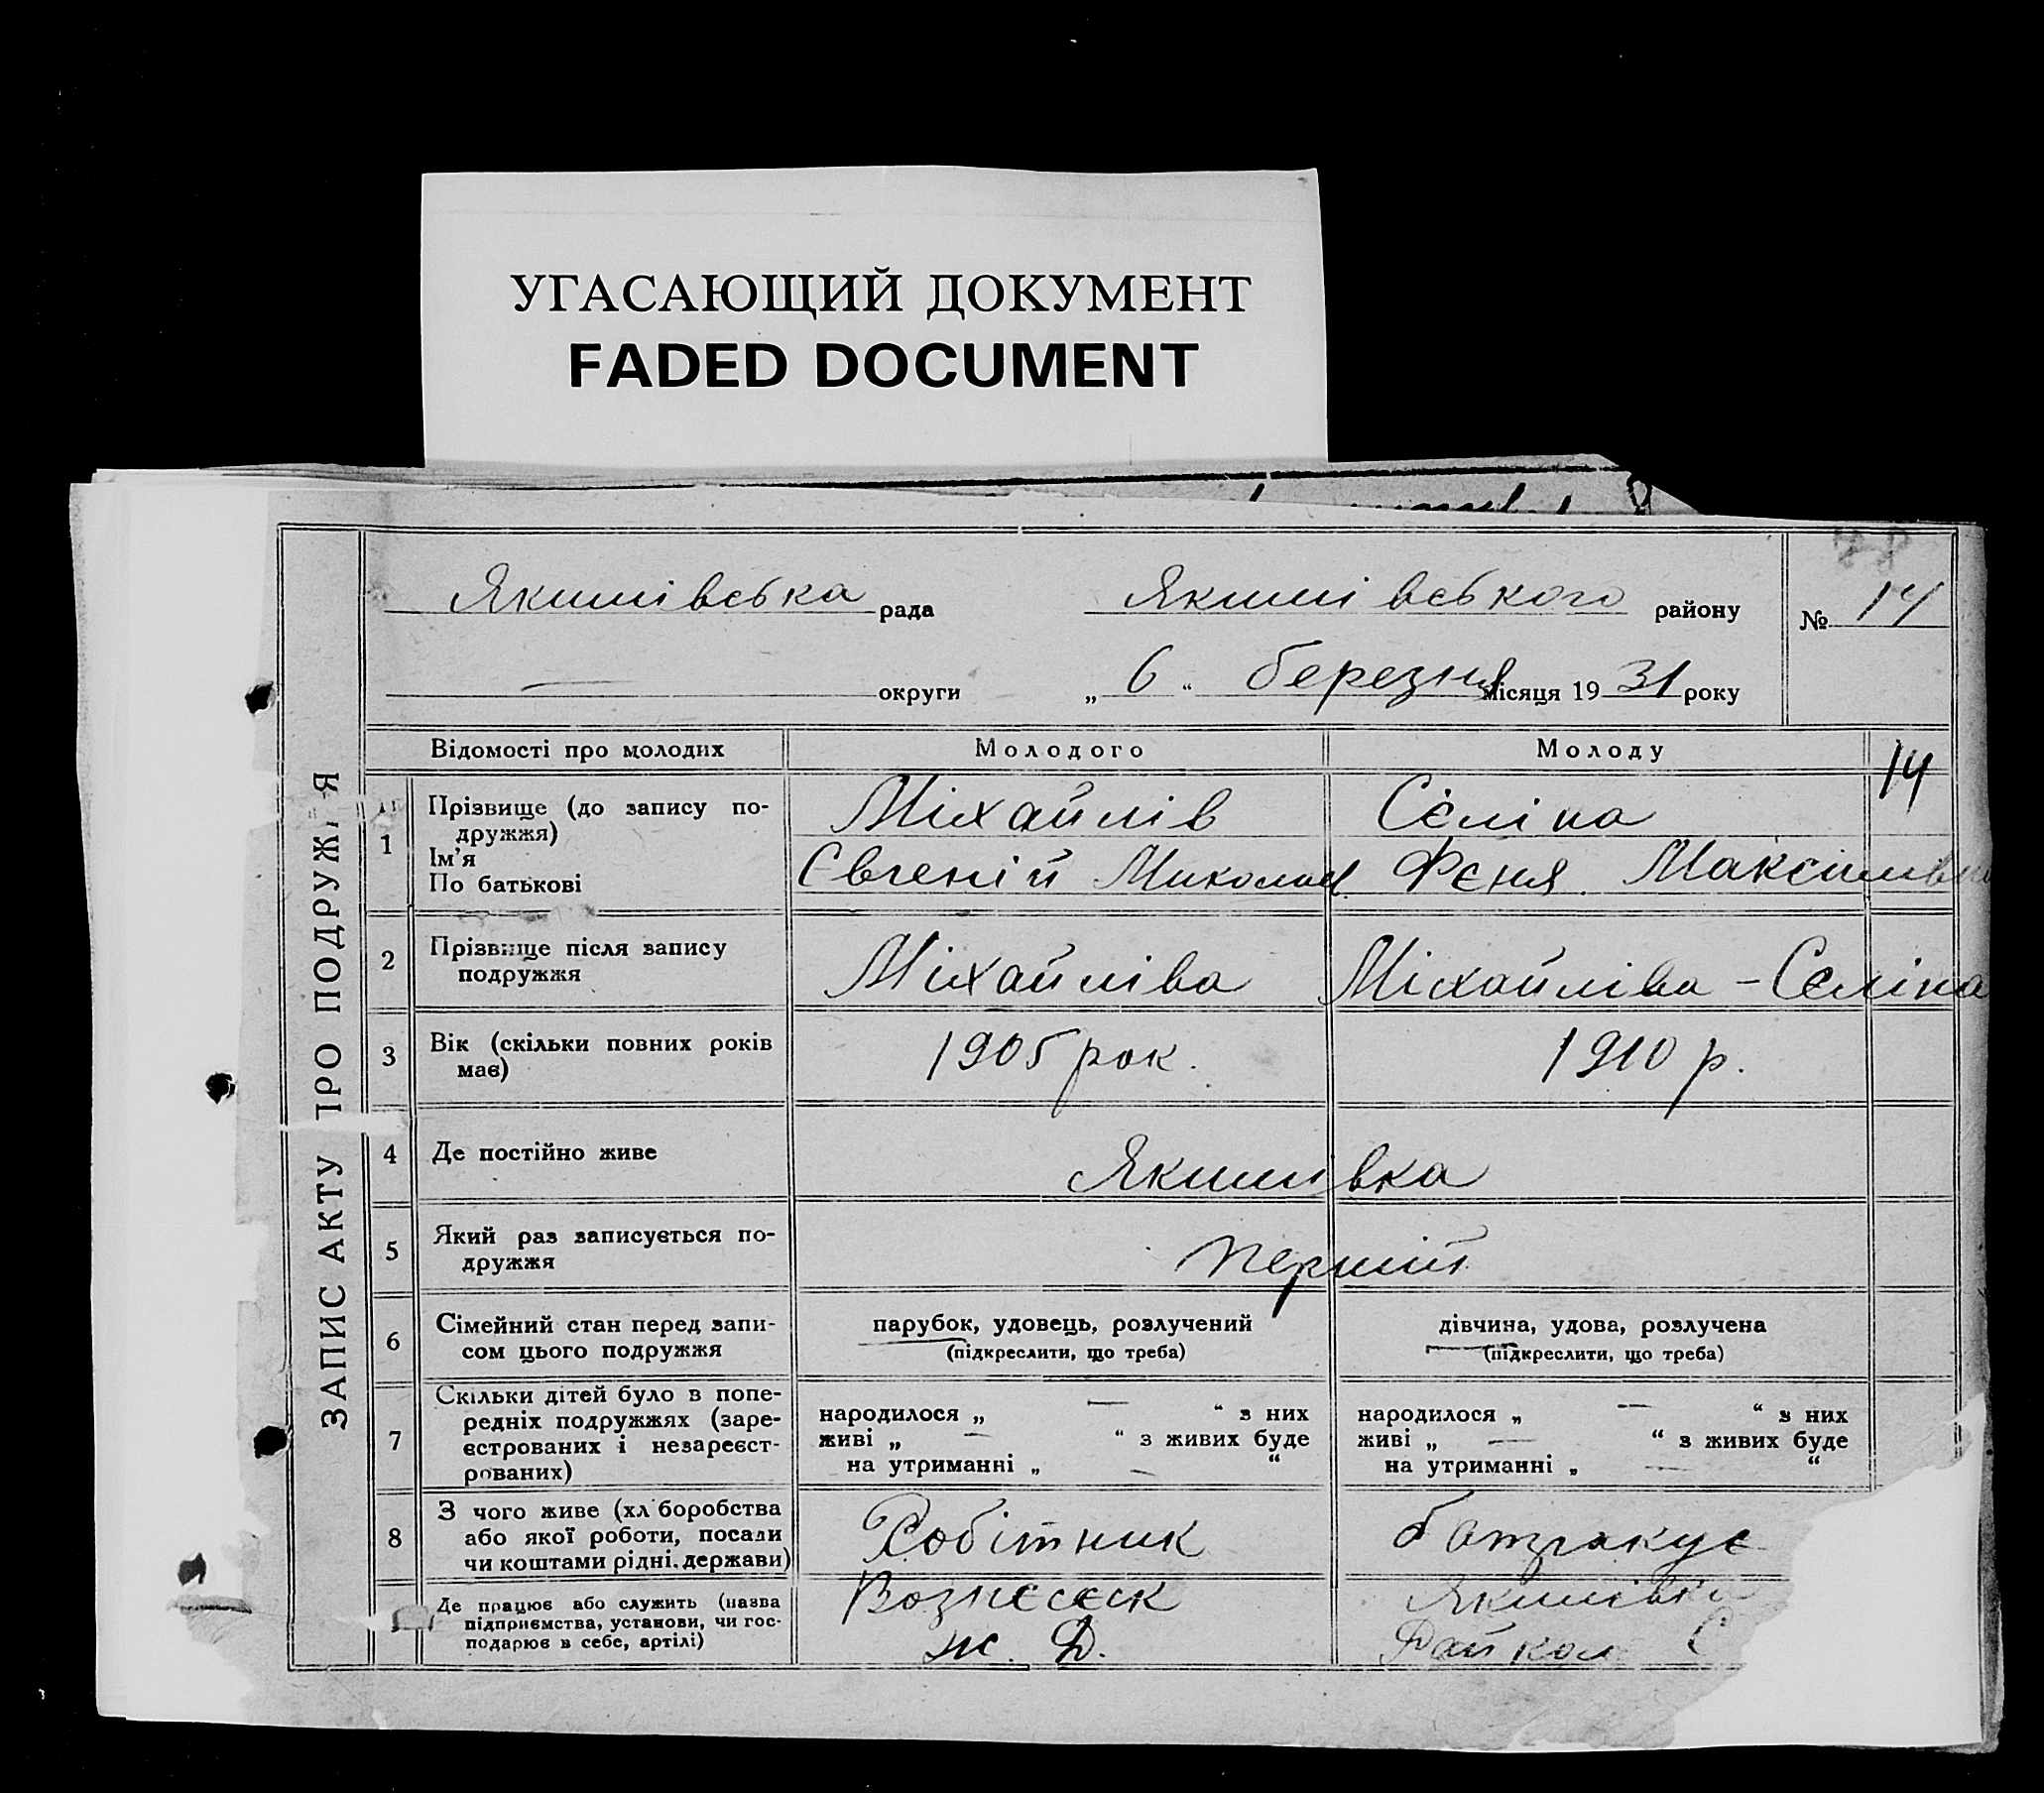 УГАСАЮЩИЙ ДОКУМЕНТ
FADED DOCUMENT
ЗАПИС АКТУ ПРО ПОДРУЖЖЯ
Якимівська рада Якимівського району № 14
округи „ 6 “ березня місяця 19 31 року
Відомості про молодих Молодого Молоду 14
1 Прізвище (до запису по-
дружжя) Міхайлів Сєліна
Ім'я
По батькові Євгеній Миколаєв Фєня Максимівна
2 Прізвище після запису
подружжя Міхайліва Міхайліва - Сєліна
3 Вік (скільки повних років
має) 1905 рок. 1910 р.
4 Де постійно живе Якимівка
5 Який раз записується по-
дружжя перший
6 Сімейний стан перед запи-
сом цього подружжя
парубок, удовець, розлучений
(підкреслити, що треба)
дівчина, удова, розлучена
(підкреслити, що треба)
7 Скільки дітей було в попе-
редніх подружжях (заре-
єстрованих і незареєст-
рованих)
народилося „ — “ з них
живі „ — “ з живих буде
на утриманні „ — “
народилося „ — “ з них
живі „ — “ з живих буде
на утриманні „ — “
8 З чого живе (хліборобства
або якої роботи, посади
чи коштами рідні, держави)
Робітник
батракує
Де працює або служить (назва
підприємства, установи, чи гос-
подарює в себе, артілі)
Вознєсєнск
ж. д.
Якимівка
Райкол С